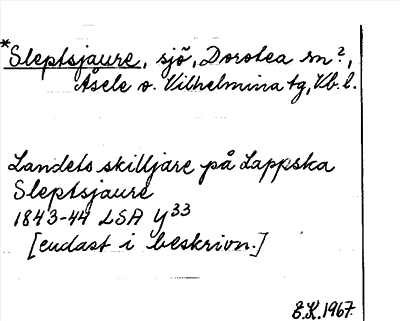 *Sleptsjaure, sjö, Dorotea sn?,
Åsele o. Vilhelmina tg, Vb. l.
Landets skilljare på Lappska
Sleptsjaure
1843-44 LSA Y33
[endast i beskrivn.]
E.K. 1967.